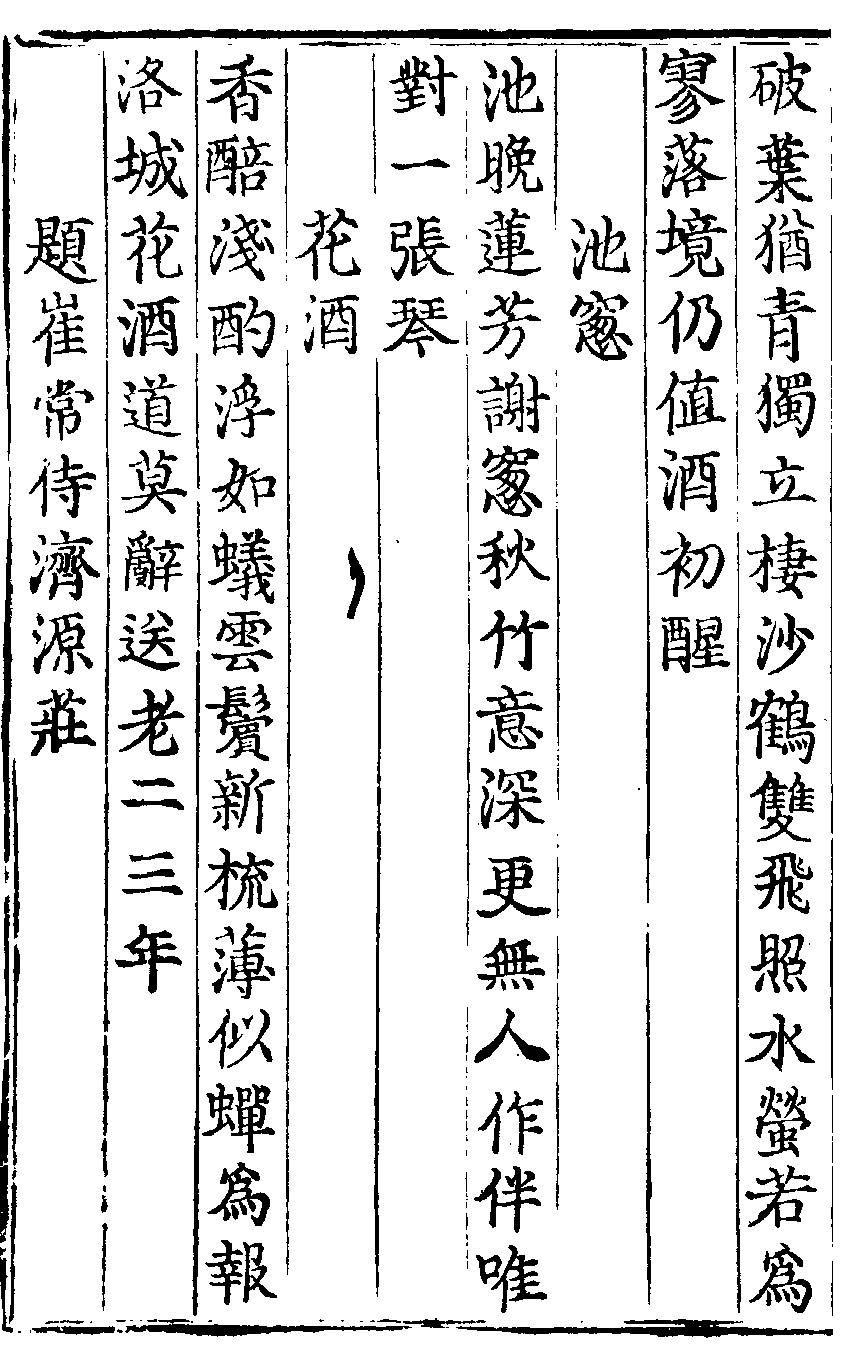 破葉猶青獨立棲沙鶴雙飛照水螢若爲
寥落境仍值酒初醒
池窻
池晚蓮芳謝窻秋竹意深更無人作伴唯
對一張琴
花酒
香醅淺酌浮如蟻雲鬢新梳薄似蟬爲報
洛城花酒道莫辭送老二三年
題崔常侍濟源莊